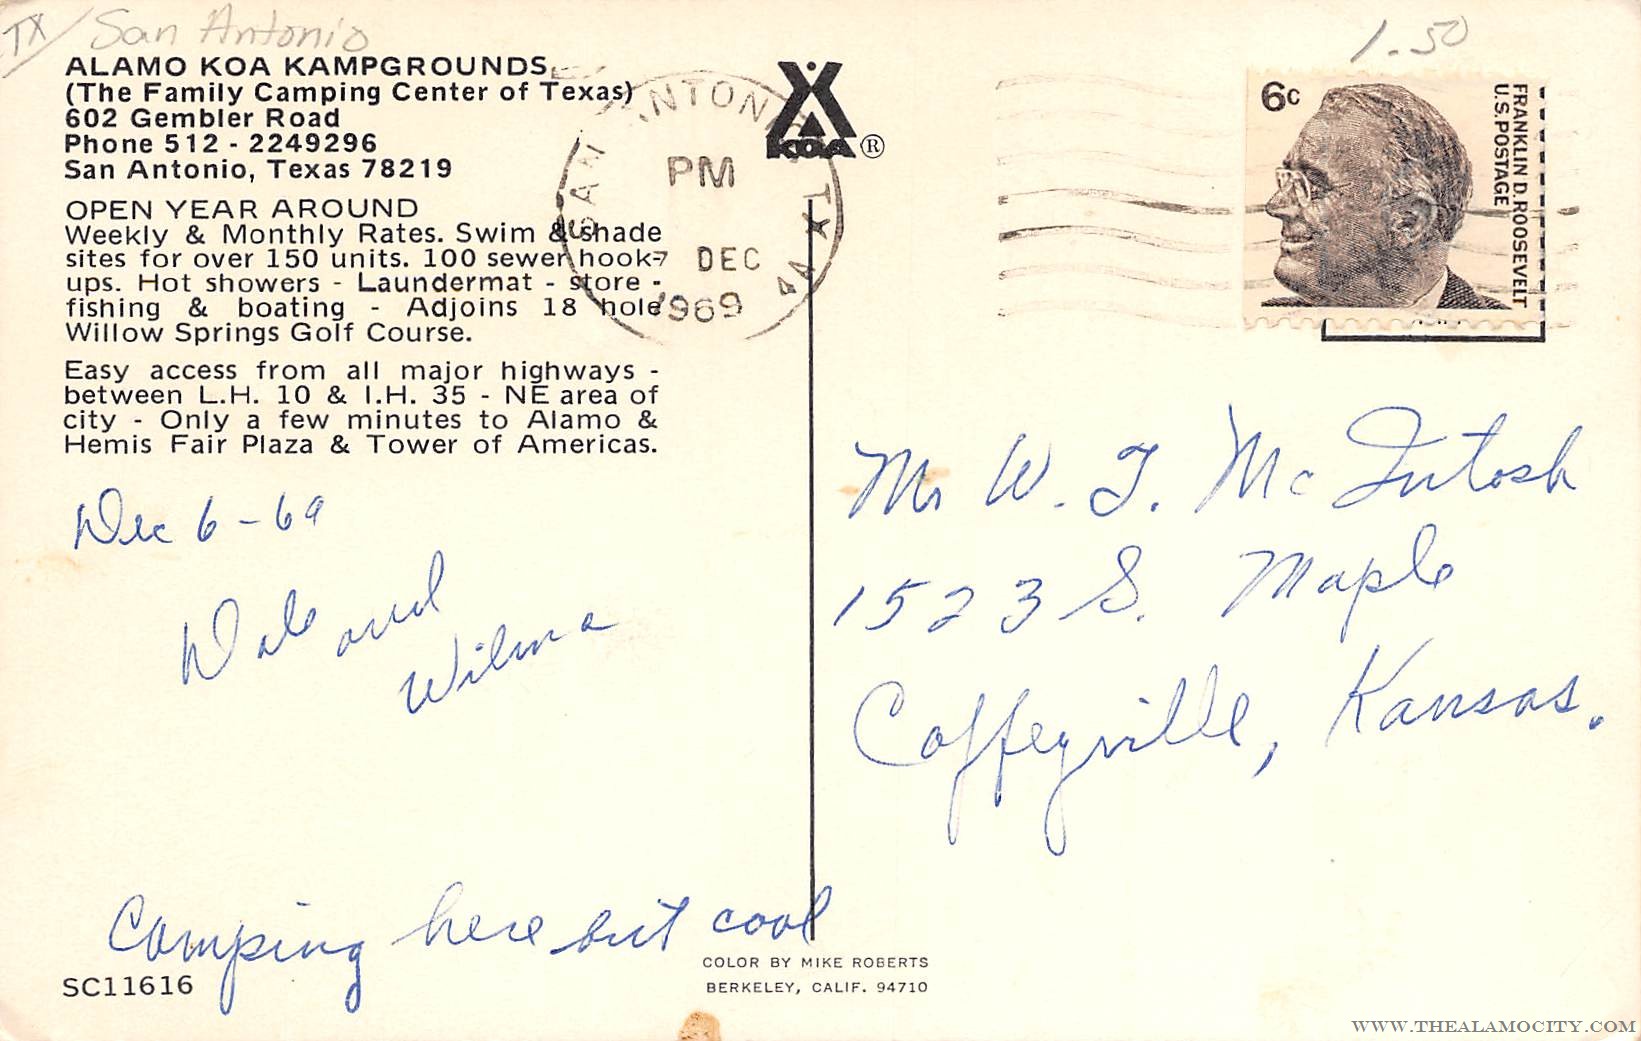 TX / San Antonio
1.50
ALAMO KOA KAMPGROUNDS
(The Family Camping Center of Texas)
602 Gembler Road
Phone 512 - 2249296
San Antonio, Texas 78219
OPEN YEAR AROUND
Weekly & Monthly Rates. Swim & shade
sites for over 150 units. 100 sewer hook-
ups. Hot showers - Laundermat - store -
fishing & boating - Adjoins 18 hole
Willow Springs Golf Course.
Easy access from all major highways -
between L.H. 10 & I.H. 35 - NE area of
city - Only a few minutes to Alamo &
Hemis Fair Plaza & Tower of Americas.
SAN ANTONIO TX
PM
7 DEC
1969
KOA ®
6c
FRANKLIN D. ROOSEVELT
U.S. POSTAGE
Dec 6-69
Dale and
Wilma
Camping here but cool
Mr W. T. McIntosh
1523 S. Maple
Coffeyville, Kansas.
SC11616
COLOR BY MIKE ROBERTS
BERKELEY, CALIF. 94710
WWW.THEALAMOCITY.COM